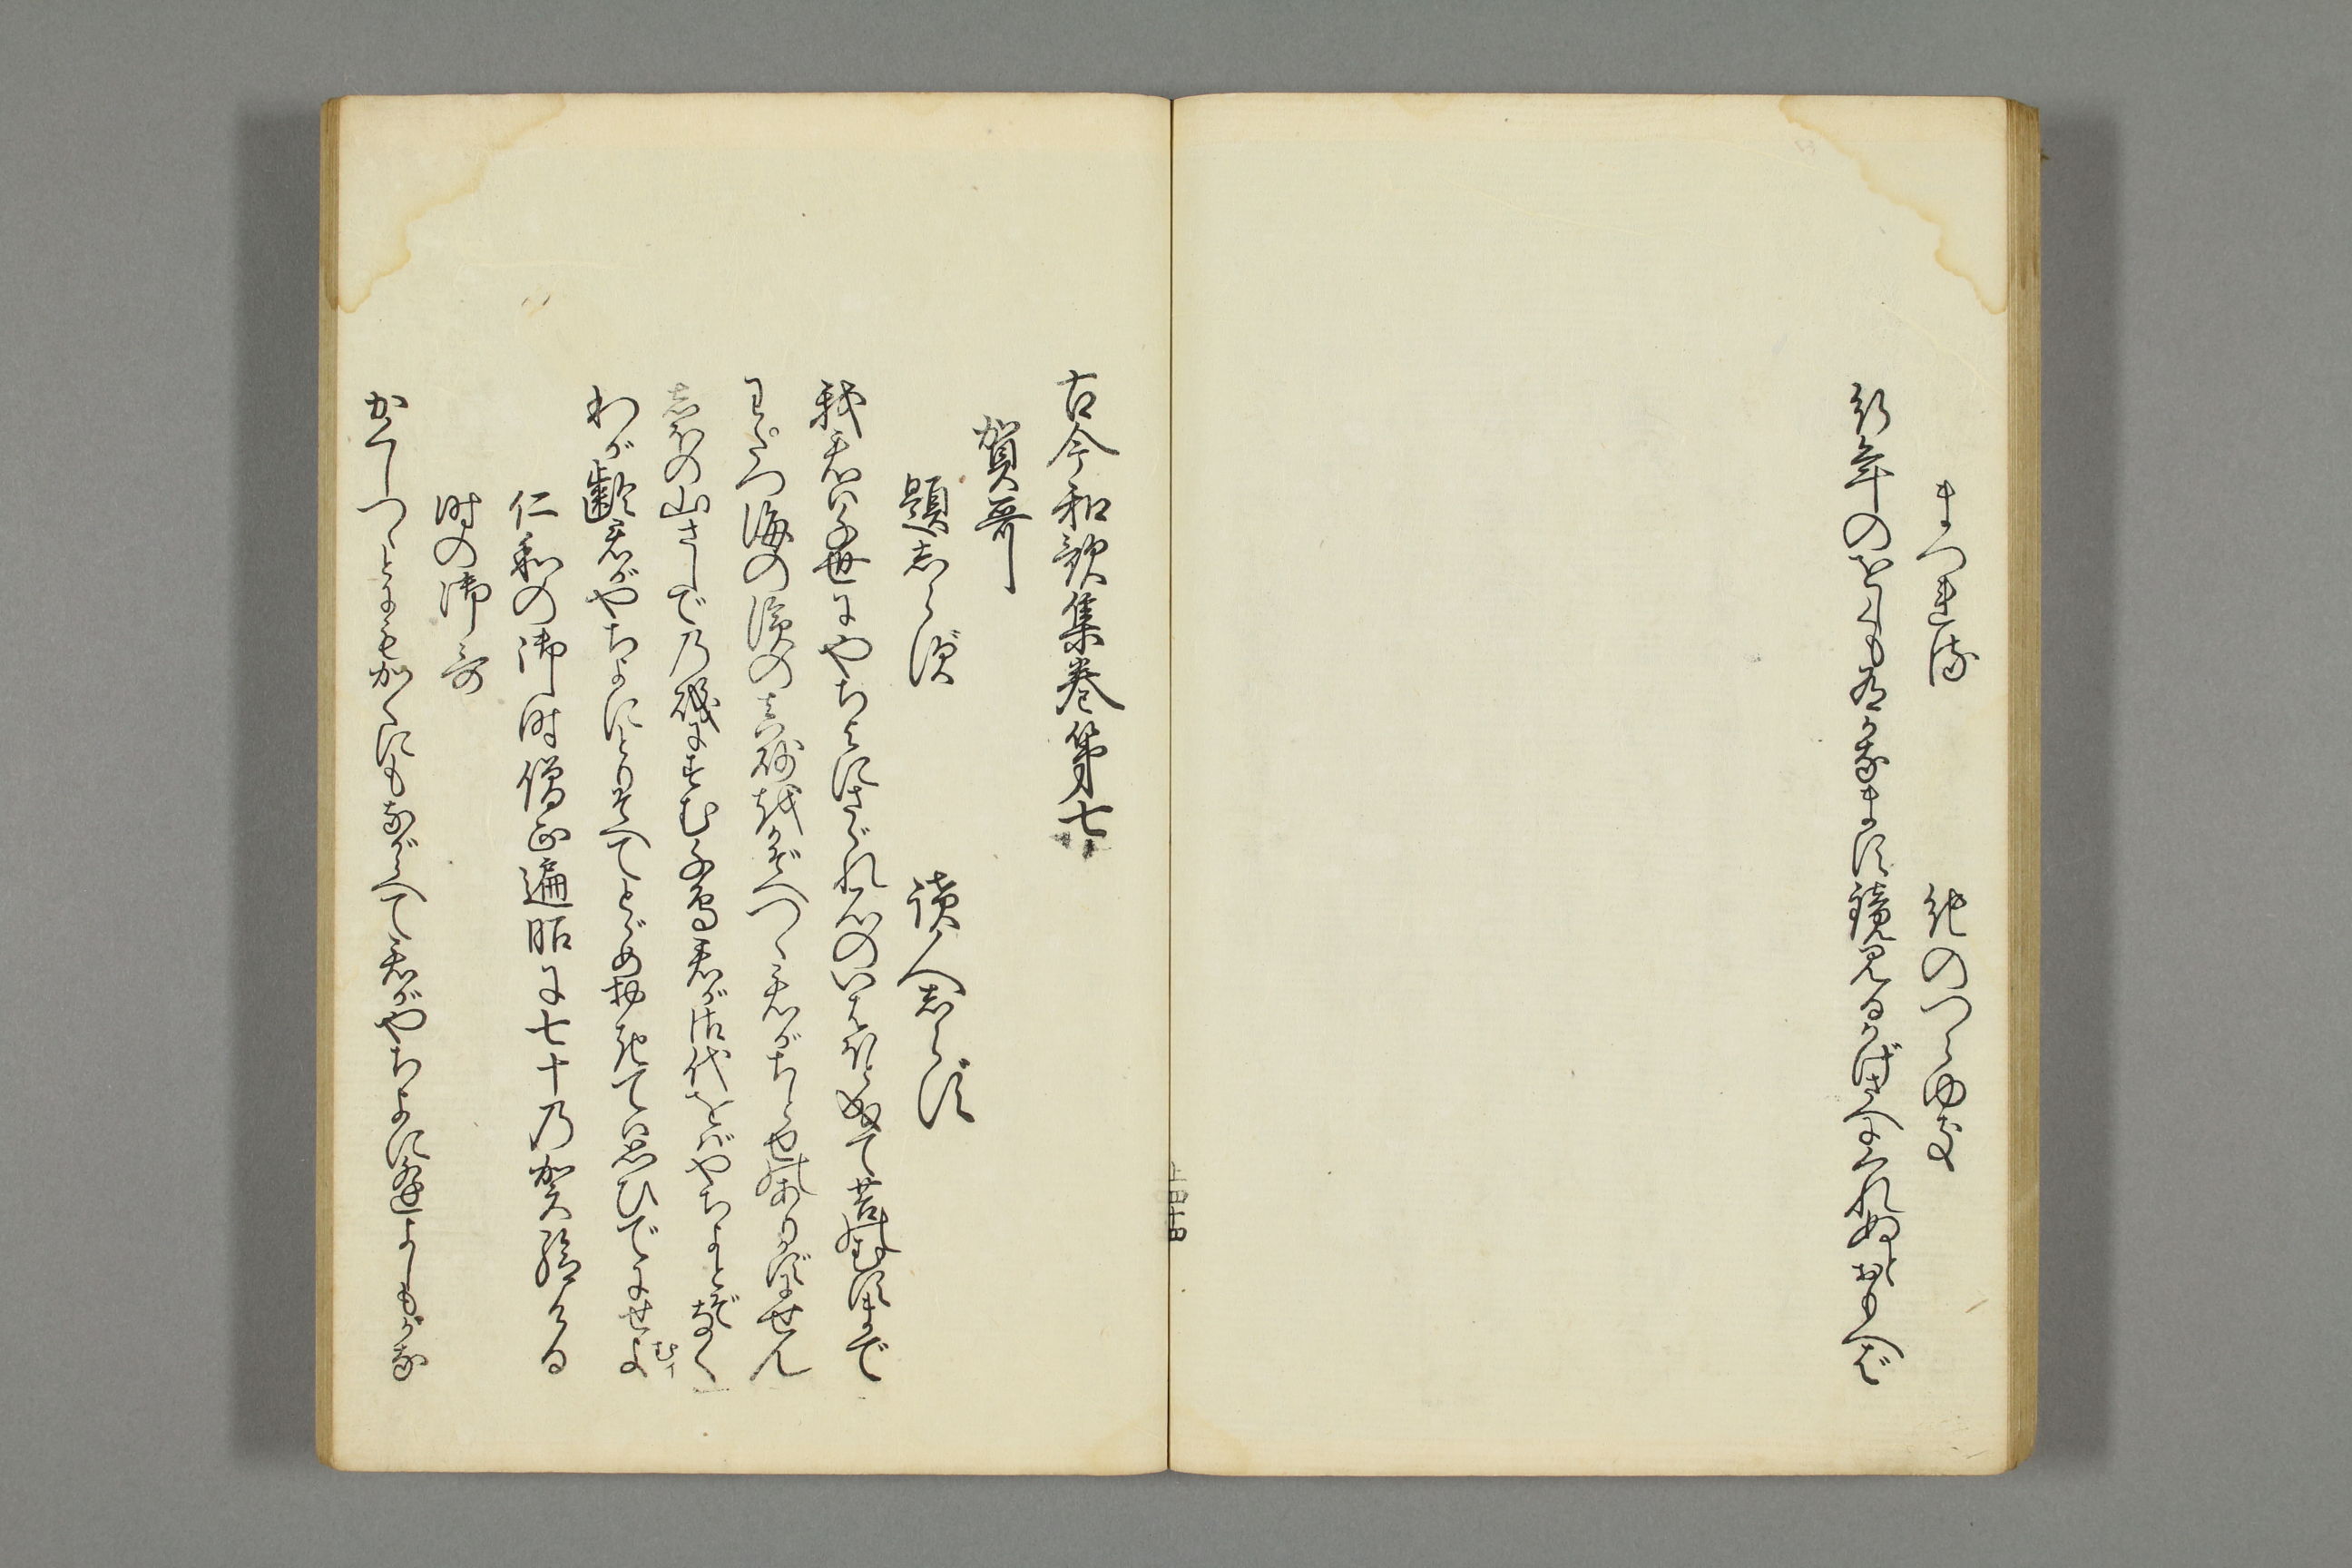 まつれる　紀のつらゆき
行年のをしくも有かなます鏡見るかげさへにくれぬとおもへば
古今和歌集巻第七
賀哥
題しらず　讀人しらず
我君は千世にやちよにさゞれ石のいはほと成て苔のむすまで
わたつ海の濱の真砂をかぞへつゝ君がちとせのありかずにせん
しほの山さしでの磯にすむ千鳥君が御代をばやちよとぞなく
わが齢君がやちよにとりそへてとゞめおきてば思ひでにせよ
むイ
仁和の御時僧正遍昭に七十の賀給ける
時の御哥
かくしつゝとにもかくにもながらへて君がやちよに逢よしもがな
上四十四